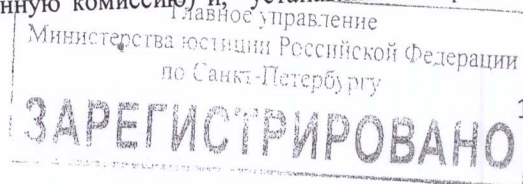 нную комиссию) и,
Главное управление
Министерства юстиции Российской Федерации
по Санкт-Петербургу
ЗАРЕГИСТРИРОВАНО